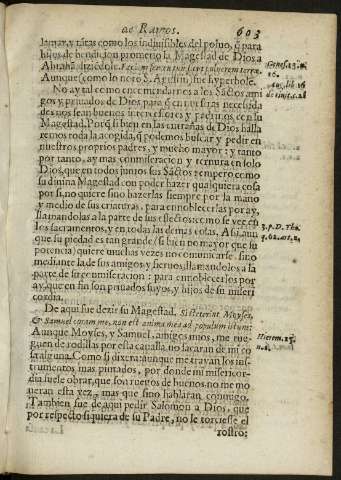 de Ramos.
603
la mar, y tãtas como los indiuisibles del poluo, q̃ para
hijos de bendicion prometio la Magestad de Dios a
Abrahã diziẽdole. Faciam semen tuum sicut puluerem terræ.
Aunque (como lo notò S. Agustin) fue hyperbole.
No ay tal como encomendarnos a los Sãctos ami
gos y priuados de Dios, para q̃ en nuestras necessida
des nos sean buenos intercessores y padrinos con su
Magestad. Porq̃ si bien en las entrañas de Dios halla
remos toda la acogida, q̃ podemos buscar y pedir en
nuestros proprios padres, y mucho mayor: y tanto
por tanto, ay mas conmiseracion y ternura en solo
Dios, que en todos juntos sus Sãctos: tempero como
su diuina Magestad con poder hazer qualquiera cosa
por si, no quiere sino hazerlas siempre por la mano
y medio de sus criaturas, para ennoblecerlas por ay,
llamandolas a la parte de sus efectos: como se vee en
los sacramentos, y en todas las demas cosas. Assi, aun
que su piedad es tan grande (si bien no mayor que su
potencia) quiere muchas vezes no comunicarse. sino
mediante la de sus amigos y sieruos, llamandolos a la
parte de su commiseracion: para ennoblecerlos por
ay, que en fin son priuados suyos, y hijos de su miseri
cordia.
De aqui fue dezir su Magestad. Si steterint Moyses,
& Samuel coram me, non est anima mea ad populum istum:
Aunque Moyses, y Samuel, amigos mios, me rue-
guen de rodillas por essa canalla, no sacaran de mi co
sa alguna. Como si dixera: aunque me trayan los ins-
trumentos mas pintados, por donde mi misericor-
dia suele obrar, que son ruegos de buenos, no me mo
ueran esta vez, mas que sino hablaran conmigo.
Tambien fue de aqui pedir Salomon a Dios, que
por respecto si quiera de su Padre, no le torciesse el
rostro:
Genes. 13. n.
16.
Aug. lib. 16
de ciuit. c. 21
3. p. D. Tho.
q. 62. art. 2.
Hierem. 15.
n. 1.